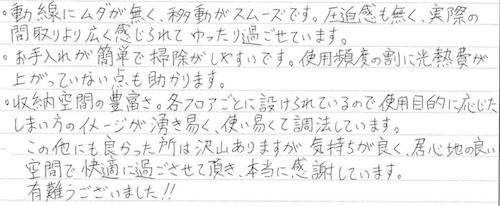 ・動線にムダが無く、移動がスムーズです。圧迫感も無く、実際の
間取りより広く感じられてゆったり過ごせています。
・お手入れが簡単で掃除がしやすいです。使用頻度の割に光熱費が
上がっていない点も助かります。
・収納空間の豊富さ。各フロアごとに設けられているので使用目的に応じた
しまい方のイメージが湧き易く、使い易くて調法しています。
この他にも良かった所は沢山ありますが気持ちが良く、居心地の良い
空間で快適に過ごさせて頂き、本当に感謝しています。
有難うございました!!